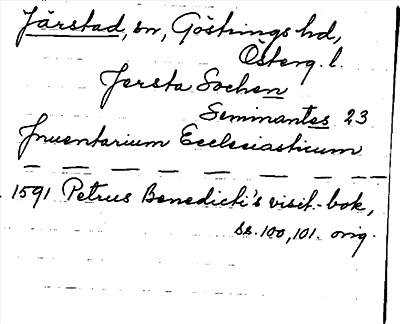 Järstad, sn, Göstrings hd,
Österg. l.
Jersta Sochen
Seminantes 23
Inuentarium Ecclesiasticum
— — — — — — — —
1591 Petrus Benedicti's visit.-bok,
ss. 100, 101. orig.